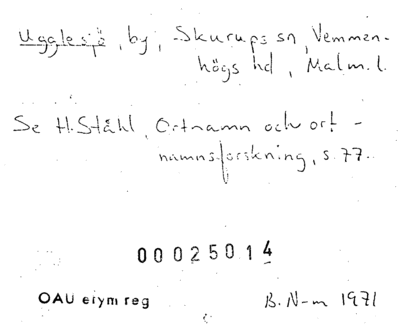 Ugglesjö, by, Skurups sn, Vemmen-
högs hd, Malm. l.
Se H. Ståhl, Ortnamn och ort-
namnsforskning, s. 77.
00025014
OAU eiym reg
B. N-m 1971